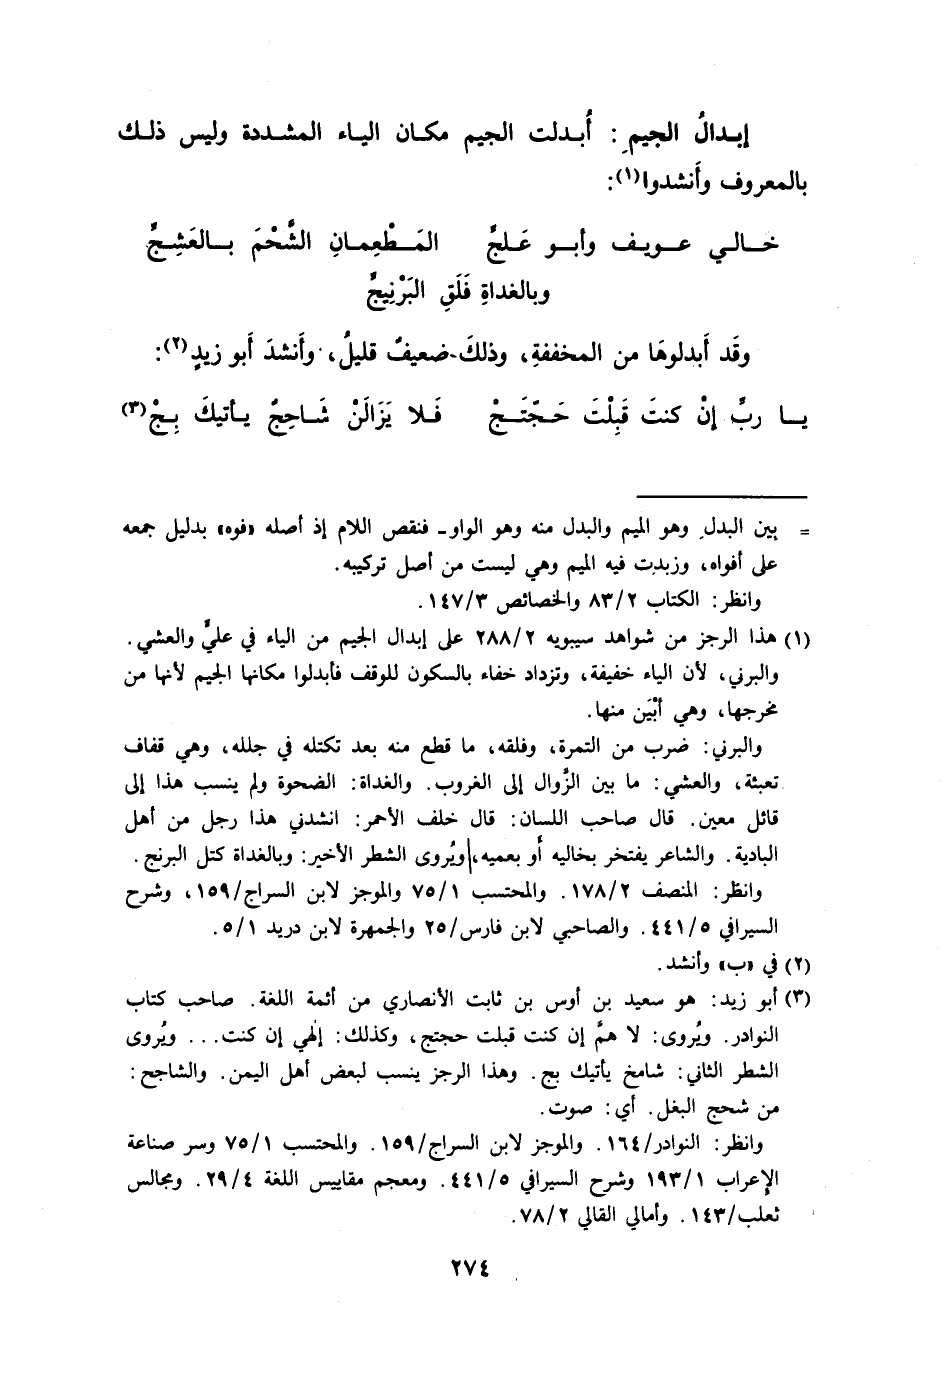 إبدالُ الجيمِ : أُبدلت الجيم مكان الياء المشددة وليس ذلك
بالمعروف وأَنشدوا(١):
خالي عويف وأبو عَلجٍّ المَطْعِمانِ الشَّحْمَ بالعَشِجِّ
وبالغداةِ فَلَقِ البَرْنِيجِّ
وقَد أَبدلوهَا من المخففةِ، وذلكَ ضعيفٌ قليلٌ، وأَنشدَ أَبو زيدٍ(٢):
يا ربِّ إنْ كنتَ قَبِلْتَ حَجّتَجْ فَلا يَزَالَنْ شَاحِجٌ يأتيكَ بِجْ(٣)
= بين البدل وهو الميم والبدل منه وهو الواو- فنقص اللام إذ أصله «فوه» بدليل جمعه
على أفواه، وزيدت فيه الميم وهي ليست من أصل تركيبه.
وانظر: الكتاب ٨٣/٢ والخصائص ١٤٧/٣.
(١) هذا الرجز من شواهد سيبويه ٢٨٨/٢ على إبدال الجيم من الياء في عليٍّ والعشي.
والبرني، لأن الياء خفيفة، وتزداد خفاء بالسكون للوقف فأبدلوا مكانها الجيم لأنها من
مخرجها، وهي أَبْيَن منها.
والبرني: ضرب من التمرة، وفلقه، ما قطع منه بعد تكتله في جلله، وهي قفاف
تعبئة، والعشي: ما بين الزَّوال إلى الغروب. والغداة: الضحوة ولم ينسب هذا إلى
قائل معين. قال صاحب اللسان: قال خلف الأحمر: انشدني هذا رجل من أهل
البادية. والشاعر يفتخر بخاليه أو بعميه، ويُروى الشطر الأخير: وبالغداة كتل البرنج.
وانظر: المنصف ١٧٨/٢. والمحتسب ٧٥/١ والموجز لابن السراج/١٥٩، وشرح
السيرافي ٤٤١/٥. والصاحبي لابن فارس/٢٥ والجمهرة لابن دريد ٥/١.
(٢) في «ب» وأنشد.
(٣) أبو زيد: هو سعيد بن أوس بن ثابت الأنصاري من أئمة اللغة. صاحب كتاب
النوادر. ويُروى: لا همَّ إن كنت قبلت حجتج، وكذلك: إلهي إن كنت... ويُروى
الشطر الثاني: شامخ يأتيك بج. وهذا الرجز ينسب لبعض أهل اليمن. والشاجح:
من شحج البغل. أي: صوت.
وانظر: النوادر/١٦٤. والموجز لابن السراج/١٥٩. والمحتسب ٧٥/١ وسر صناعة
الإعراب ١٩٣/١ وشرح السيرافي ٤٤١/٥. ومعجم مقاييس اللغة ٢٩/٤. ومجالس
ثعلب/١٤٣. وأمالي القالي ٧٨/٢.
٢٧٤